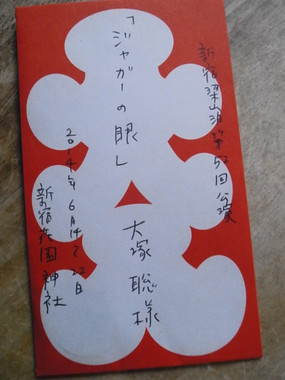 新宿梁山泊 第52回公演
「ジャガーの眼」
大塚聡様
2014年6月14〜22日
新宿花園神社